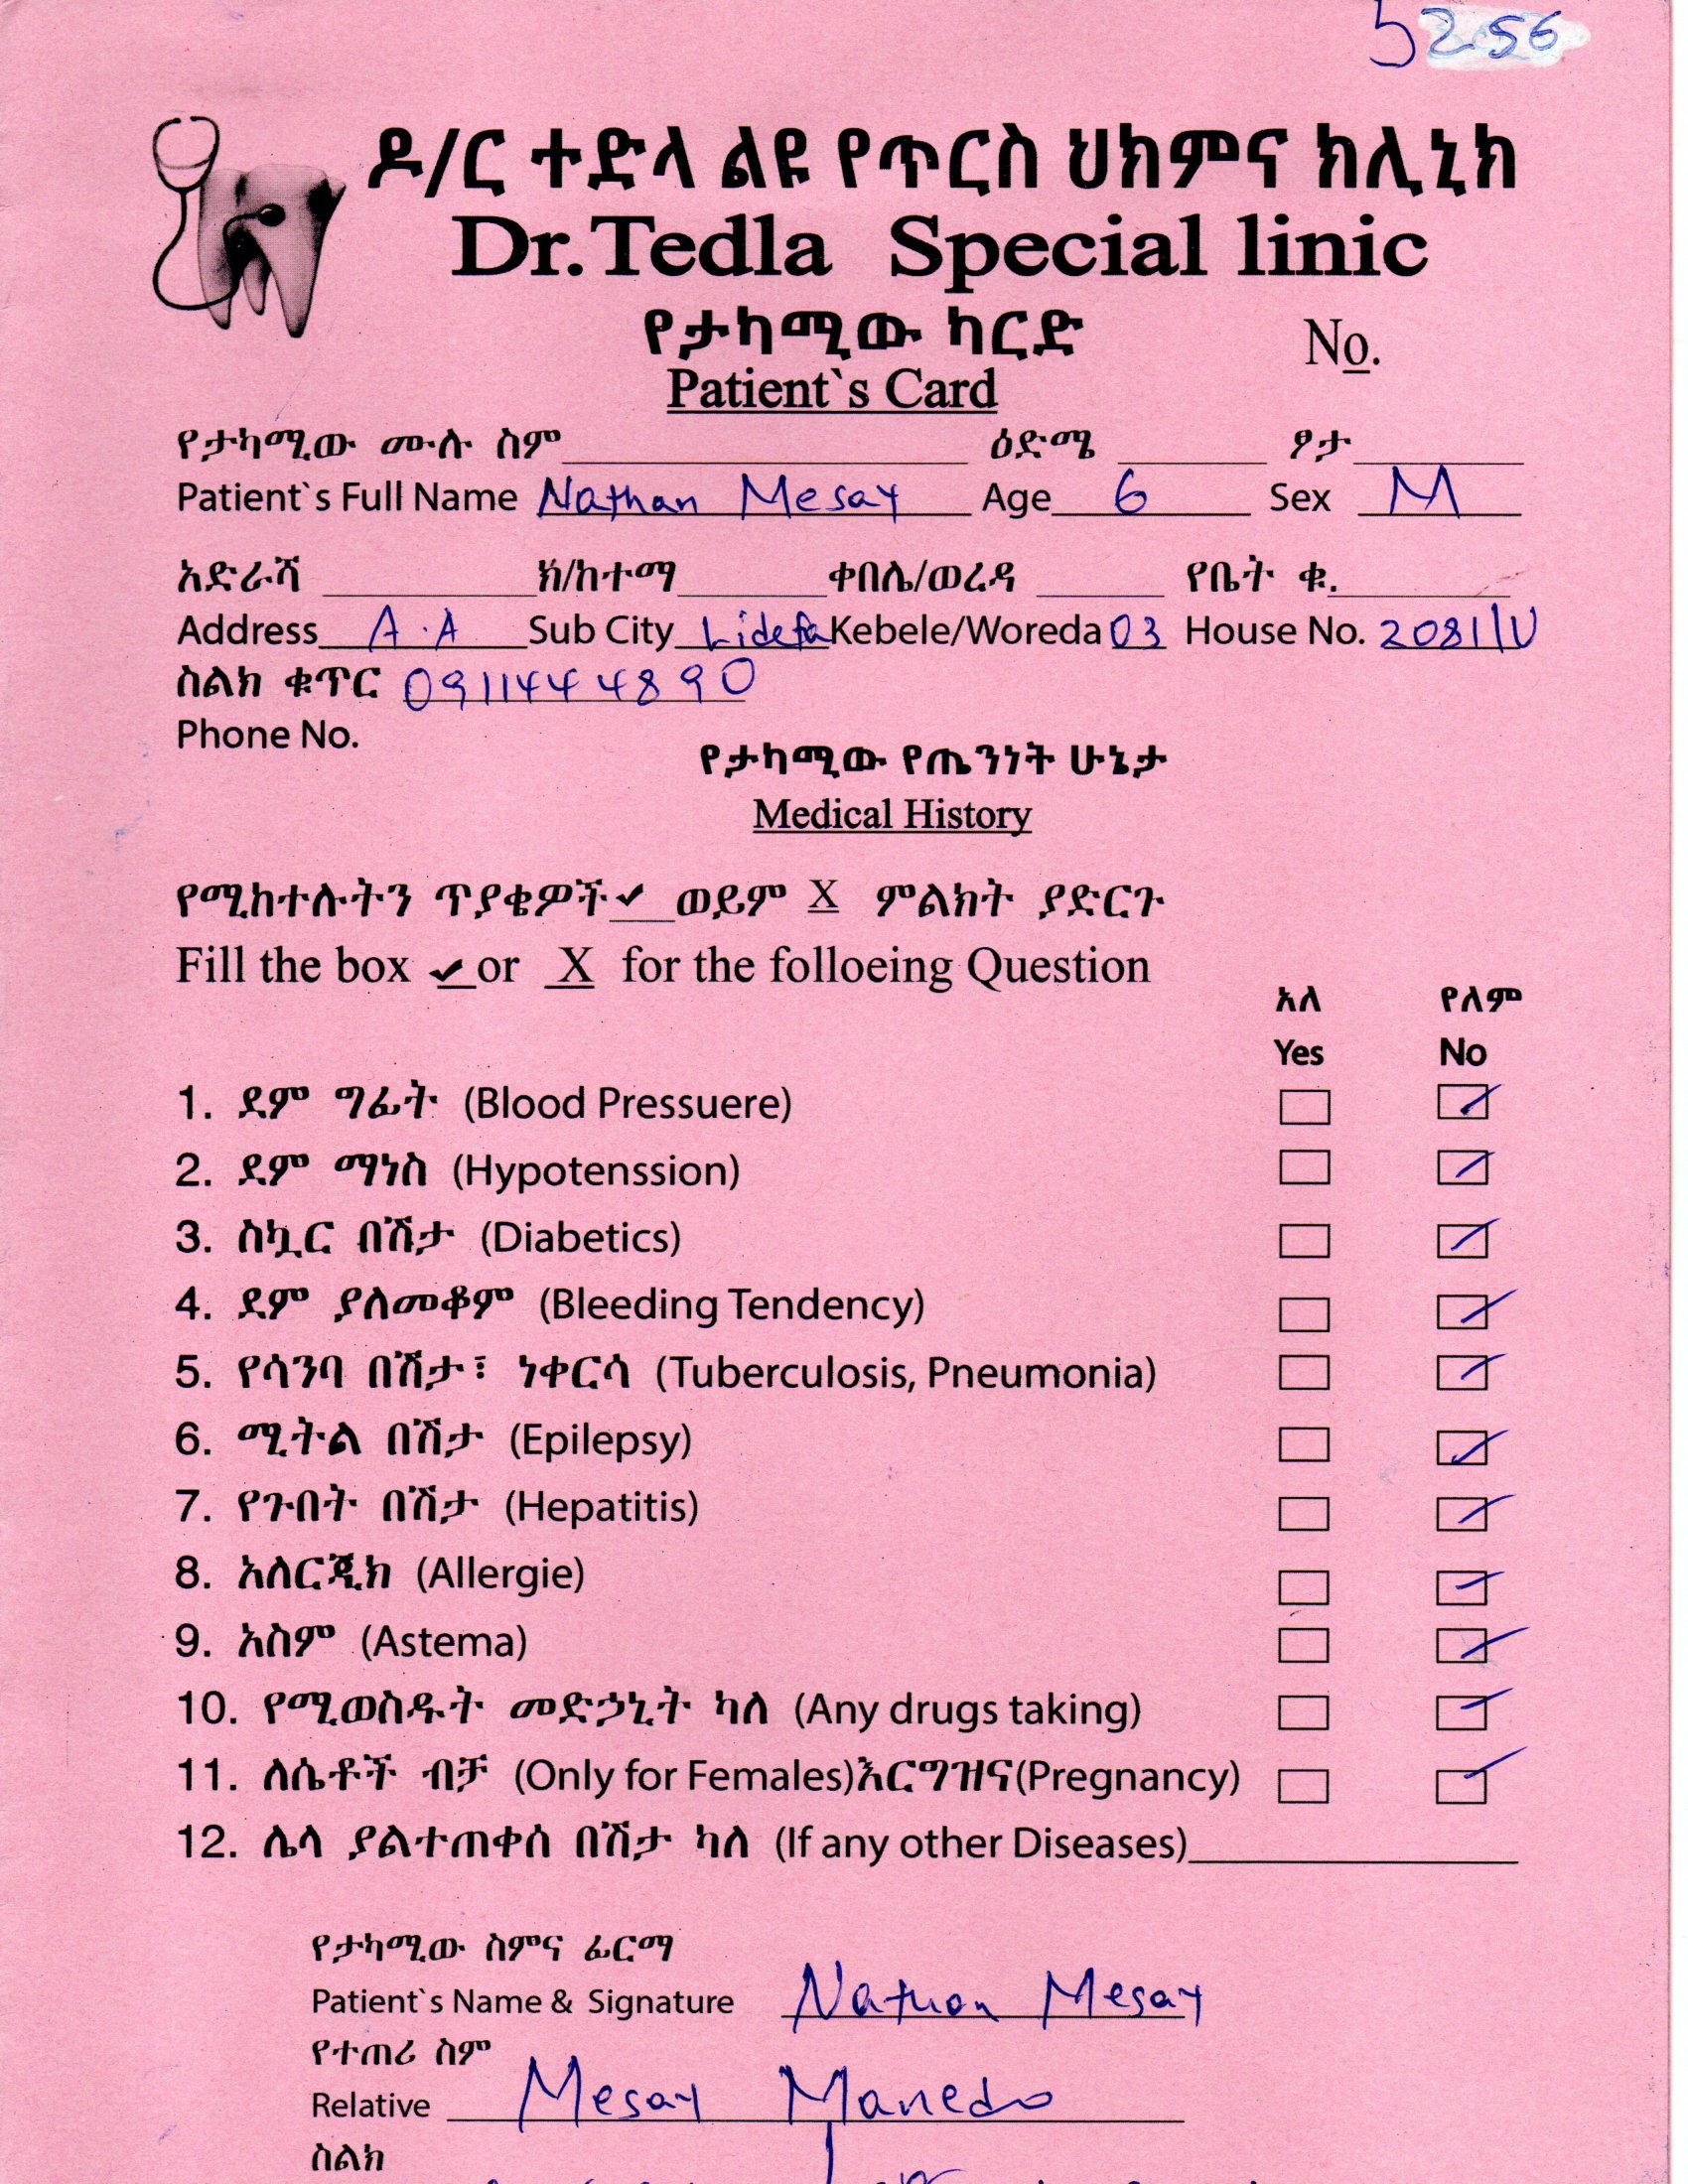 5256
ዶ/ር ተድላ ልዩ የጥርስ ህክምና ክሊኒክ
Dr.Tedla Special linic
የታካሚው ካርድ
No.
Patient`s Card
የታካሚው ሙሉ ስም ዕድሜ ፆታ
Patient`s Full Name Nathan Mesay Age 6 Sex M
አድራሻ ክ/ከተማ ቀበሌ/ወረዳ የቤት ቁ.
Address A.A Sub City Lidefa Kebele/Woreda 03 House No. 2081/
ስልክ ቁጥር 0911444890
Phone No.
የታካሚው የጤንነት ሁኔታ
Medical History
የሚከተሉትን ጥያቄዎች ✓ ወይም X ምልክት ያድርጉ
Fill the box ✓ or X for the folloeing Question
አለ የለም
Yes No
1. ደም ግፊት (Blood Pressuere)
2. ደም ማነስ (Hypotenssion)
3. ስኳር በሽታ (Diabetics)
4. ደም ያለመቆም (Bleeding Tendency)
5. የሳንባ በሽታ፣ ነቀርሳ (Tuberculosis, Pneumonia)
6. ሚትል በሽታ (Epilepsy)
7. የጉበት በሽታ (Hepatitis)
8. አለርጂክ (Allergie)
9. አስም (Astema)
10. የሚወስዱት መድኃኒት ካለ (Any drugs taking)
11. ለሴቶች ብቻ (Only for Females)እርግዝና(Pregnancy)
12. ሌላ ያልተጠቀሰ በሽታ ካለ (If any other Diseases)
የታካሚው ስምና ፊርማ
Patient`s Name & Signature Nathan Mesay
የተጠሪ ስም
Relative Mesay Manedo
ስልክ